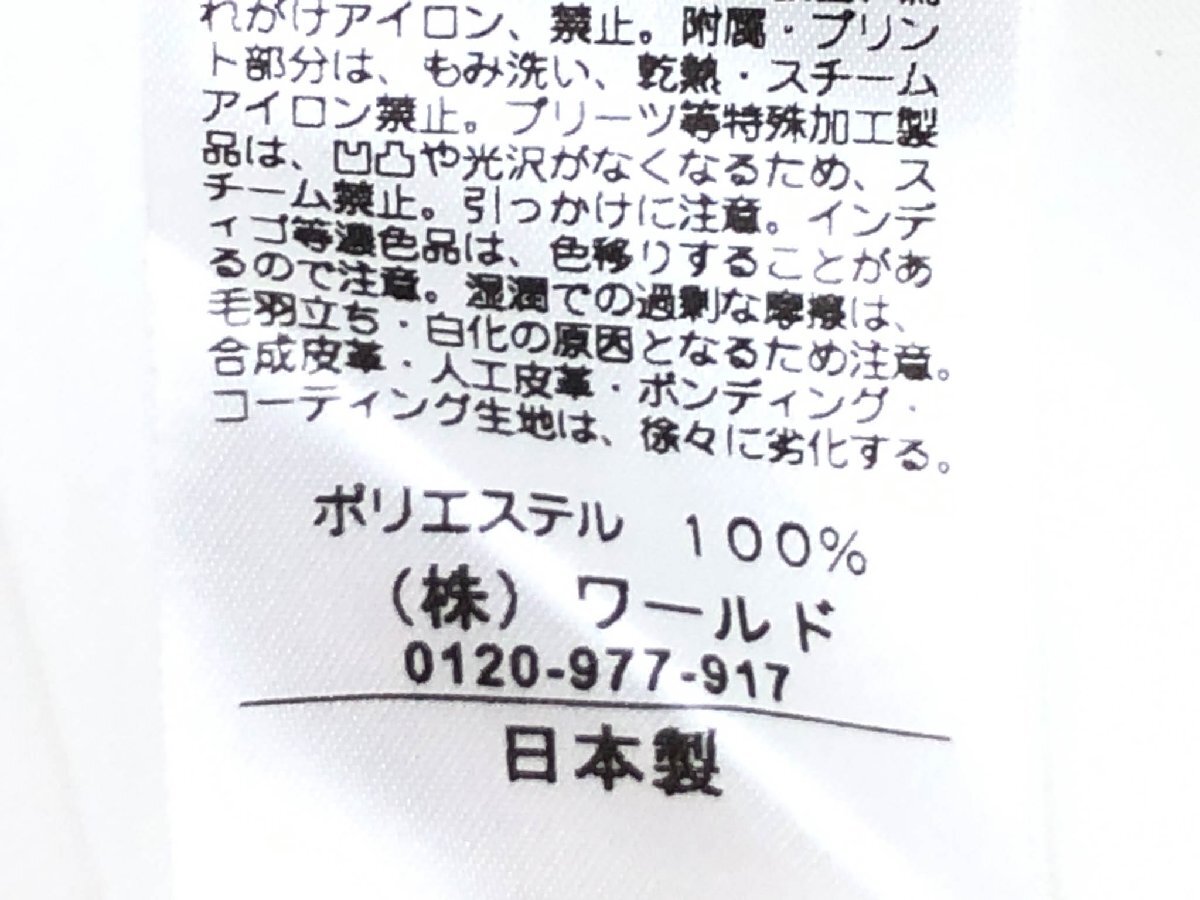 れがけアイロン、禁止。附属・プリン
ト部分は、もみ洗い、乾熱・スチーム
アイロン禁止。プリーツ等特殊加工製
品は、凹凸や光沢がなくなるため、ス
チーム禁止。引っかけに注意。インデ
ィゴ等濃色品は、色移りすることがあ
るので注意。湿潤での過剰な摩擦は、
毛羽立ち・白化の原因となるため注意。
合成皮革・人工皮革・ボンディング・
コーティング生地は、徐々に劣化する。
ポリエステル 100%
(株) ワールド
0120-977-917
日本製